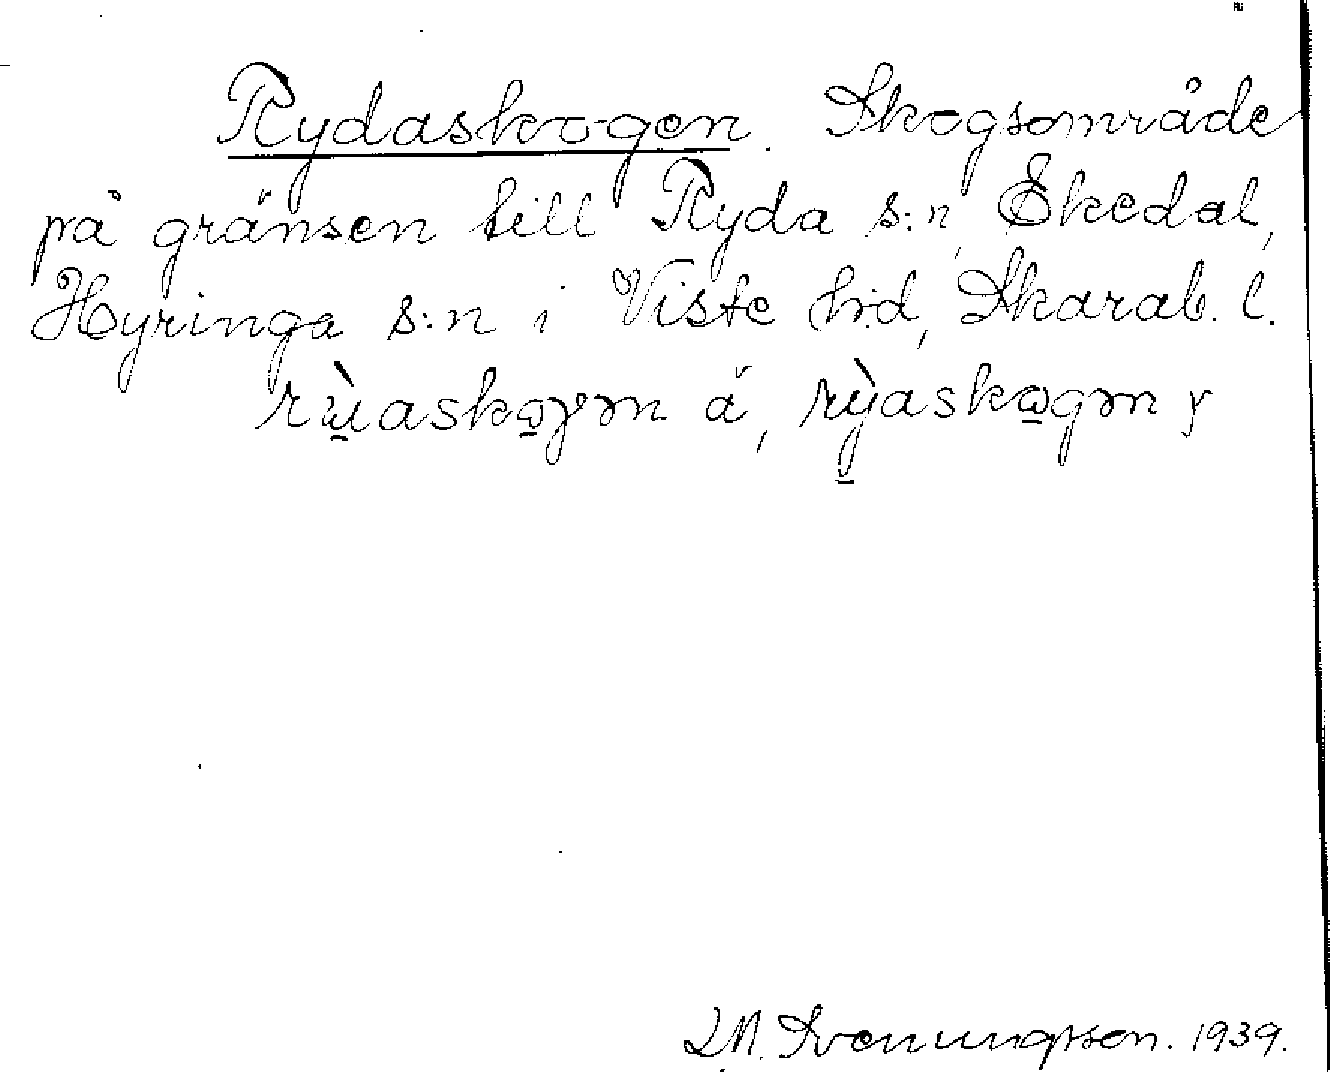 Rydaskogen. Skogsområde
på gränsen till Ryda s:n, Ekedal,
Hyringa s:n i Viste h:d, Skarab. l.
rùaskoγən ä, rỳaskogən y
L.M. Svenungsson. 1939.